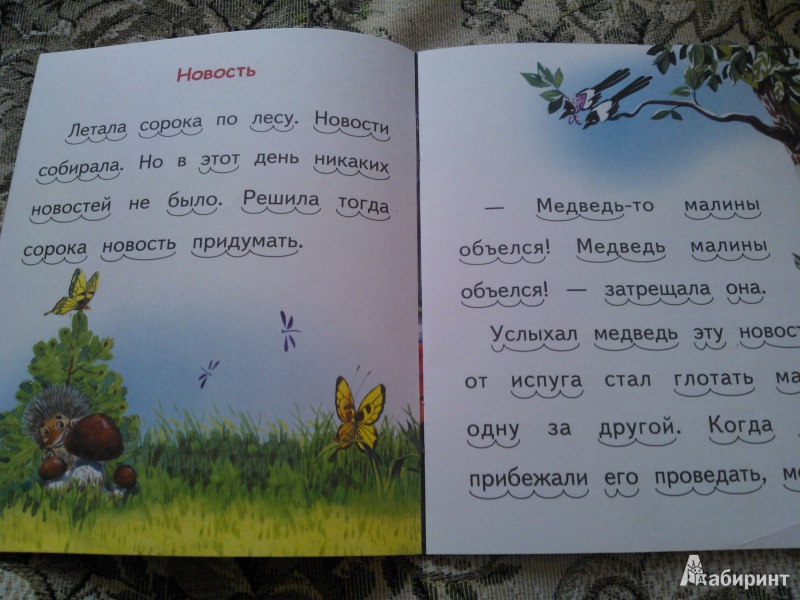 Новость
Летала сорока по лесу. Новости
собирала. Но в этот день никаких
новостей не было. Решила тогда
сорока новость придумать.
— Медведь-то малины
объелся! Медведь малины
объелся! — затрещала она.
Услыхал медведь эту новост
от испуга стал глотать ма
одну за другой. Когда
прибежали его проведать, ме
Лабиринт